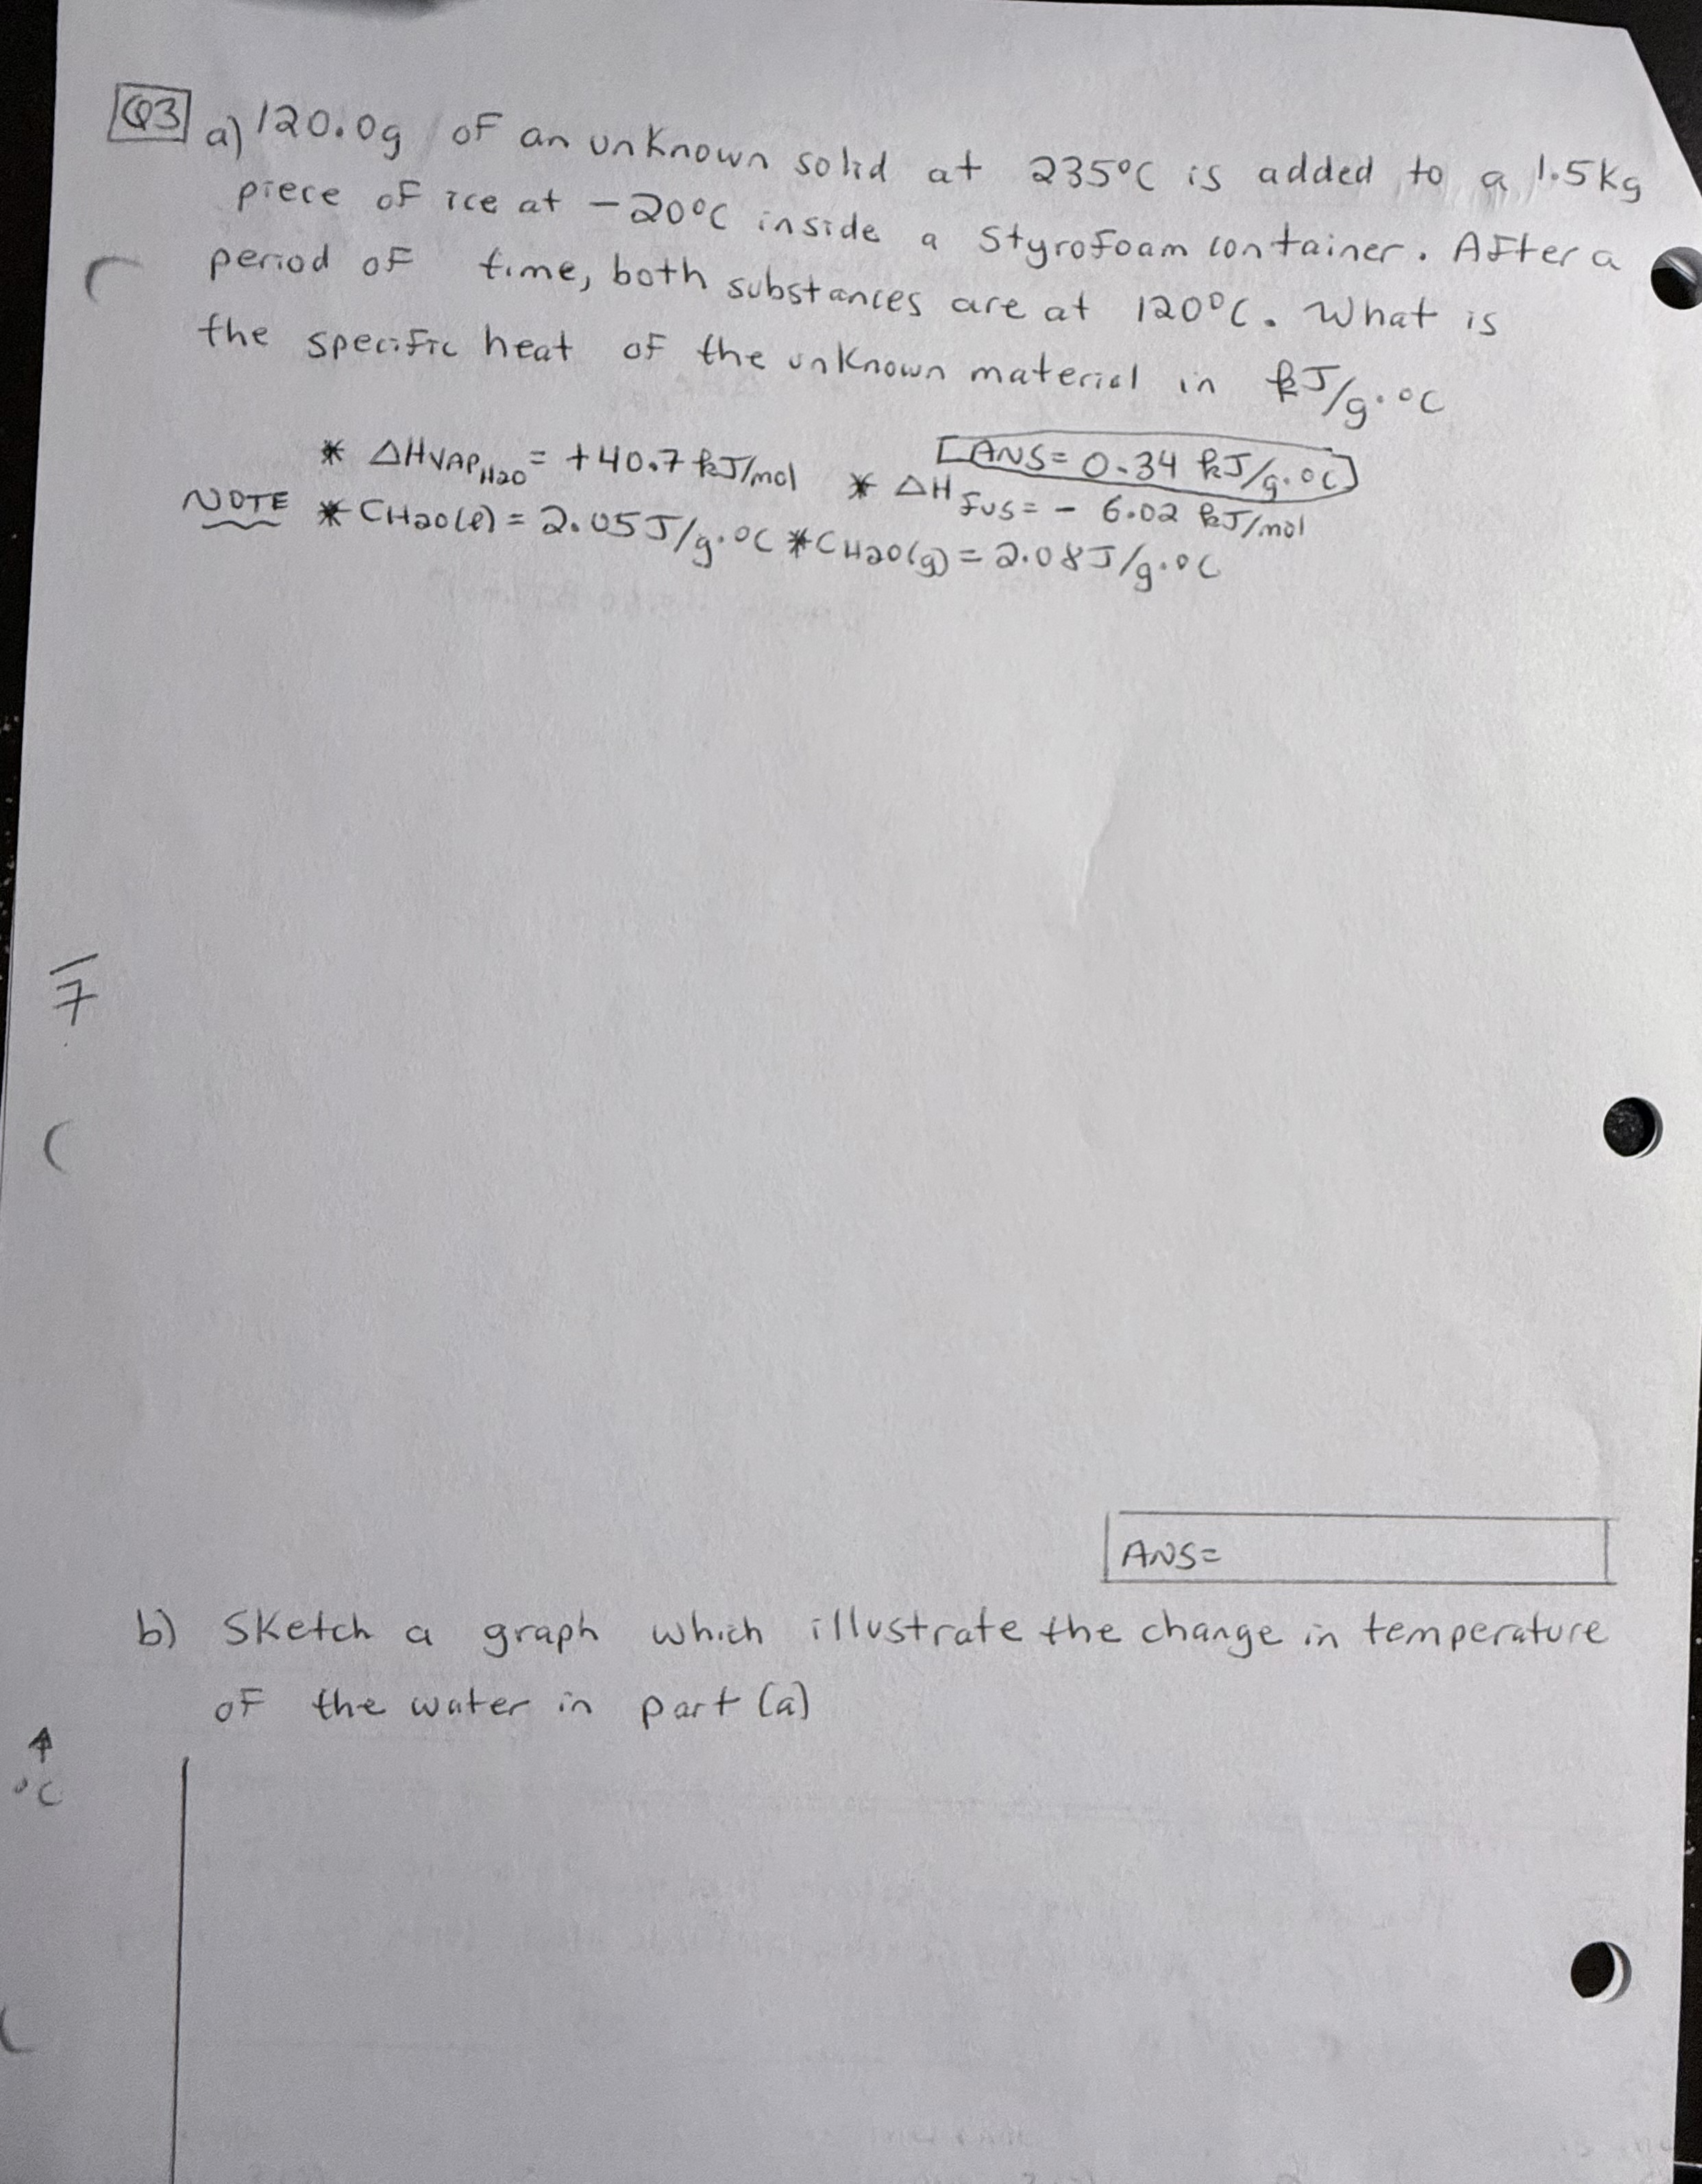 Q3 a) 120.0g of an unknown solid at 235°C is added to a 1.5kg
piece of ice at -20°C inside a Styrofoam container. After a
period of time, both substances are at 120°C. What is
the specific heat of the unknown material in kJ/g·°C
[ANS= 0.34 kJ/g·°C]
* ΔHvap H2O = +40.7 kJ/mol * ΔHfus = - 6.02 kJ/mol
NOTE * CH2O(l) = 2.05J/g·°C * CH2O(g) = 2.08J/g·°C
/7
ANS=
b) Sketch a graph which illustrate the change in temperature
of the water in part (a)
↑
°C